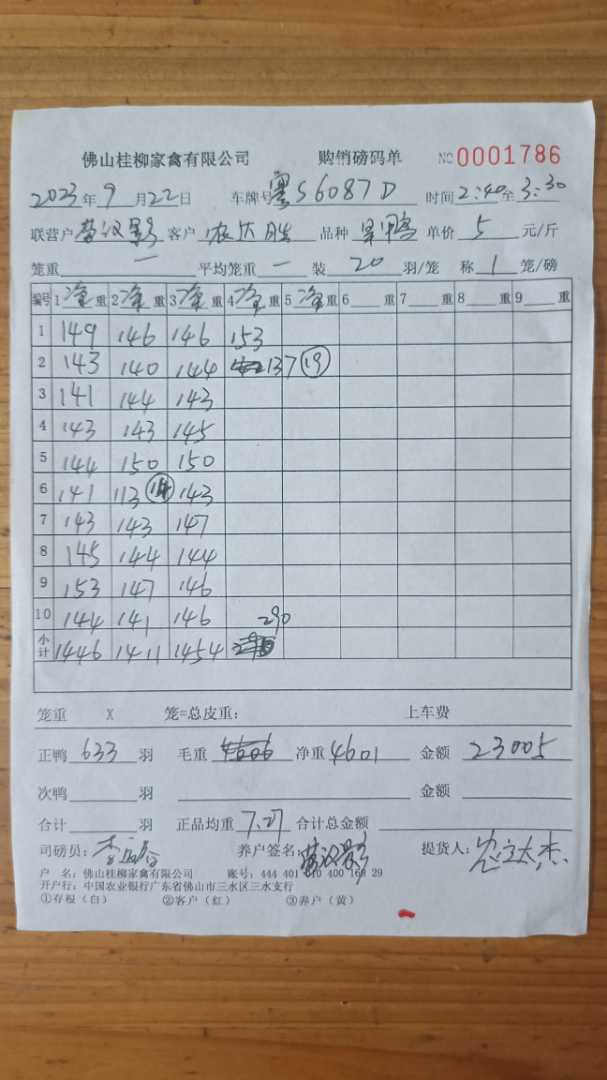 佛山桂柳家禽有限公司 购销磅码单 NO 0001786
2023年9月22日 车牌号粤S6087D 时间2:40至3:30
联营户 客户 品种旱鸭 单价5元/斤
笼重 一 平均笼重 一 装20羽/笼 称1笼/磅
编号 1净重 2净重 3净重 4净重 5净重 6 重 7 重 8 重 9 重
1 149 146 146 153
2 143 140 144 137 19
3 141 144 143
4 143 143 145
5 144 150 150
6 141 113 14 143
7 143 143 147
8 145 144 144
9 153 147 146
10 144 141 146 290
小计 1446 1411 1454
笼重 X 笼=总皮重: 上车费
正鸭633羽 毛重 净重4601 金额23005
次鸭 羽 金额
合计 羽 正品均重7.27 合计总金额
司磅员: 养户签名: 提货人:
户 名: 佛山桂柳家禽有限公司 账号: 444 401 010 400 169 29
开户行: 中国农业银行广东省佛山市三水区三水支行
①存根(白) ②客户(红) ③养户(黄)